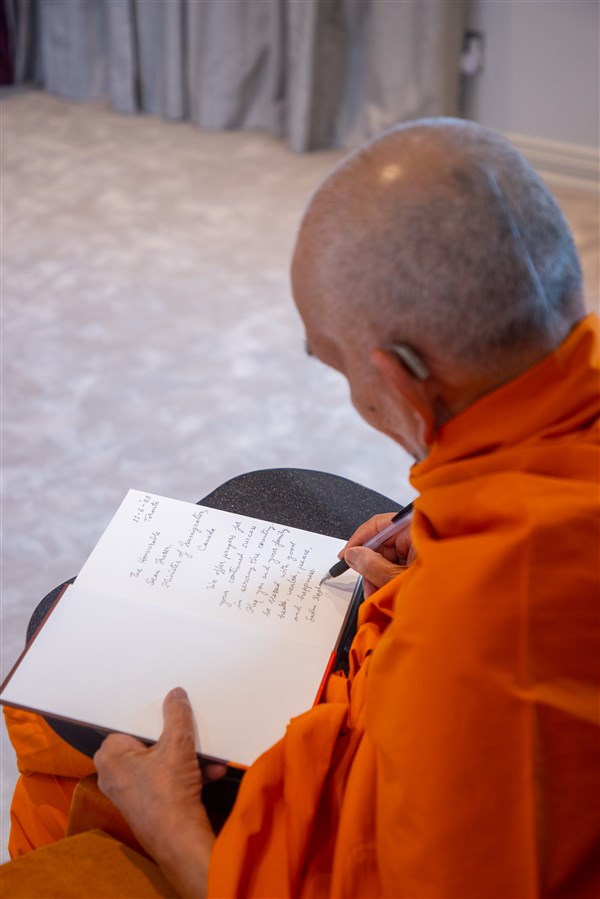 22-6-'23
Toronto
The Honorable
Sean Fraser
Minister of Immigration,
Canada
We offer prayers for
your continued success
in serving the country.
May you and your family
be blessed with good
health, wealth, peace,
and happiness
Sadhu